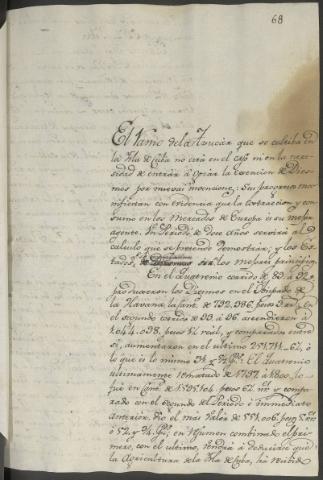 68
El Ramo del Azucar que se cultiba en
la Ysla de Cuba no está en el caso ni en la nece-
sidad de entrár á optár la esencion de Dies-
mos por nuevas invenciones: Sus progresos ma-
nifiestan con evidencia que la extraccion y con-
sumo en los Mercados de Europa es su mejor
agente. Un Periodo de doce años servirá al
Calculo que se pretende demostrár; y los Es-
tados, sus mejores principios.
En el Quatrenio corrido de 89 á 92
produxeron los Diezmos en el Obispado de
la Havana la cant. de 792,386 pesos
el segundo corrido de 93 á 96 ascendieron á
1.044.098, pesos 1½ real, y comparados entre
sí, aumentaron en el ultimo 251.711
lo que es lo mismo El Quatrenio
ultimamente rematado de 1797 á 1800, lo
fué en Cant. de 1.595.104, pesos 6½ rr. y compa-
rado con el segundo del Periodo é immediato
anterior, dio el mas Valor de 551,006, pesos
ó 52, y ¾ en resumen combinado el pri-
mero, con el ultimo, vendrá á deducirse que
la Agricultura de la Ysla de Cuba, ha